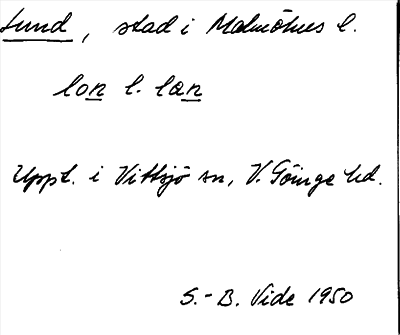 Lund, stad i Malmöhus l.
lon l. læn
Uppt. i Vittsjö sn, V. Göinge hd.
S.-B. Vide 1950